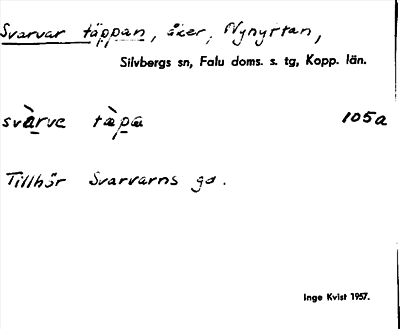 Svarvar täppan, åker, Nynyttan,
Silvbergs sn, Falu doms. s. tg, Kopp. län.
svàrve tàpa 105a
Tillhör Svarvarns gd.
Inge Kvist 1957.